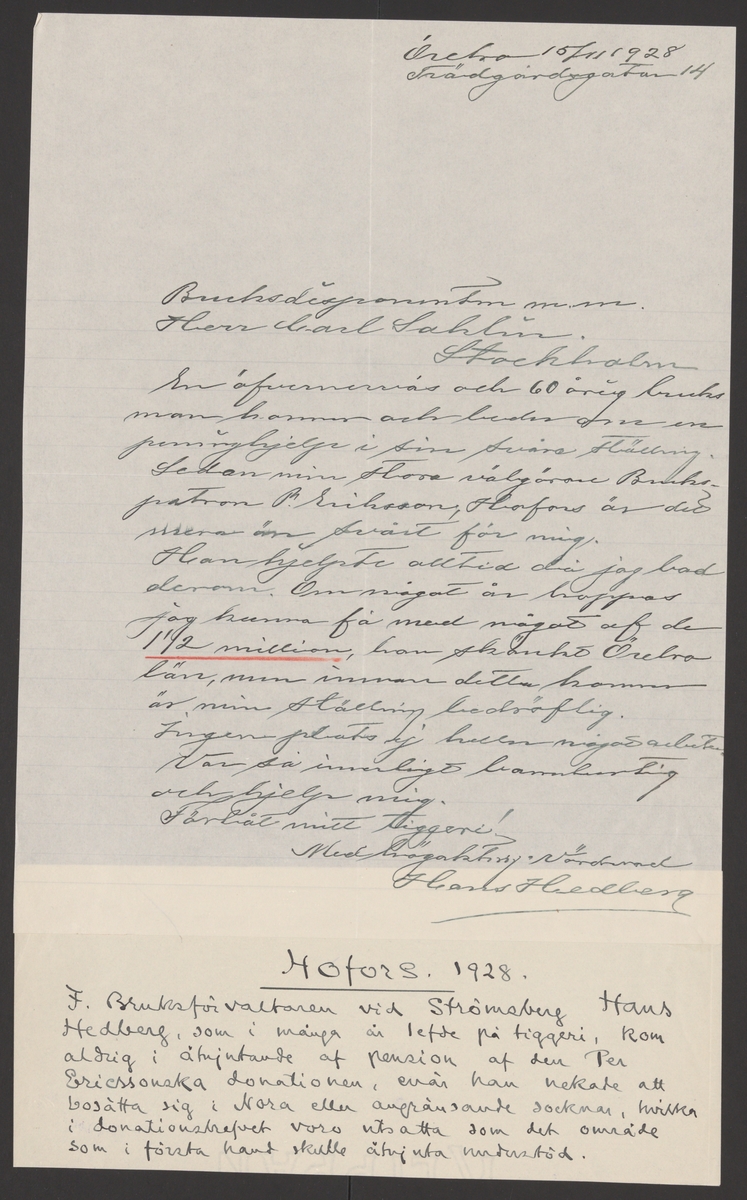 Örebro 15/11 1928
Trädgårdsgatan 14
Bruksdisponenten m.m.
Herr Carl Sahlin.
Stockholm
En öfvernervös och 60 årig bruks
man kommer och beder om en
penninghjelp i sin svåra ställning.
Sedan min stora välgörare Bruks-
patron P. Eriksson, Hofors är det
mera än svårt för mig.
Han hjelpte alltid då jag bad
derom. Om något år hoppas
jag kunna få med något af de
1 1/2 million, han skänkt Örebro
län, men innan detta kommer
är min ställning bedröflig.
Ingen plats ej heller något arbete.
Var så innerligt barmhertig
och hjelp mig.
Förlåt mitt tiggeri!
Med högaktning Vördnad
Hans Hedberg
Hofors. 1928.
F. Bruksförvaltaren vid Strömsberg Hans
Hedberg, som i många år lefde på tiggeri, kom
aldrig i åtnjutande af pension af den Per
Ericssonska donationen, enär han nekade att
bosätta sig i Nora eller angränsande socknar, hvilka
i donationsbrefvet voro utsatta som det område
som i första hand skulle åtnjuta understöd.